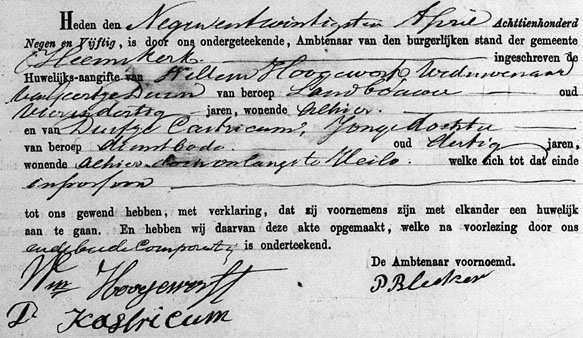 Heden den Negenentwintigsten April Achttienhonderd
Negen en Vijftig, is door ons ondergeteekende, Ambtenaar van den burgerlijken stand der gemeente
Heemskerk ingeschreven de
Huwelijks-aangifte van Willem Hoogewerf Weduwenaar
van Geertje Duin van beroep Landbouwer oud
vierendertig jaren, wonende alhier.
en van Duifje Castricum, Jonge dochter
van beroep dienstbode oud dertig jaren,
wonende alhier doch onlangs te Heilo. welke zich tot dat einde
in persoon
tot ons gewend hebben, met verklaring, dat zij voornemens zijn met elkander een huwelijk
aan te gaan. En hebben wij daarvan deze akte opgemaakt, welke na voorlezing door ons
en de beide Comparanten is onderteekend.
De Ambtenaar voornoemd.
Wm Hoogewerf
P Blecker
D Kastricum